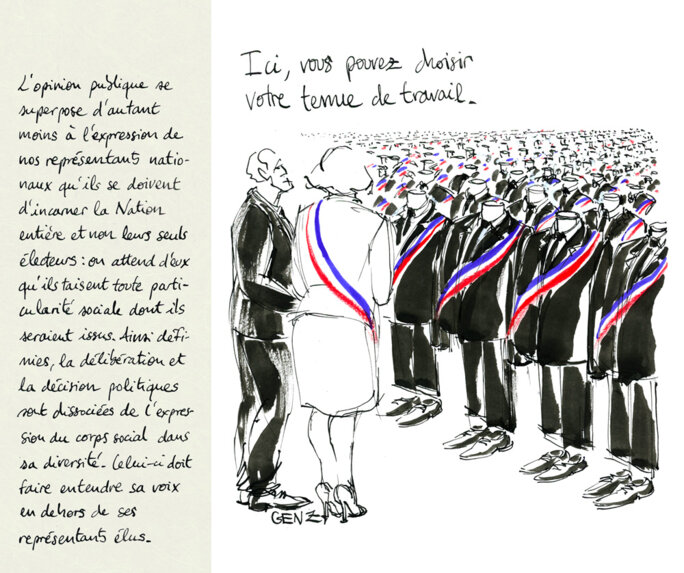 L'opinion publique se
superpose d'autant
moins à l'expression de
nos représentants natio-
naux qu'ils se doivent
d'incarner la Nation
entière et non leurs seuls
électeurs : on attend d'eux
qu'ils taisent toute parti-
cularité sociale dont ils
seraient issus. Ainsi défi-
nies, la délibération et
la décision politiques
sont dissociées de l'expres-
sion du corps social dans
sa diversité. Celui-ci doit
faire entendre sa voix
en dehors de ses
représentants élus.
Ici, vous pouvez choisir
votre tenue de travail.
GENZ